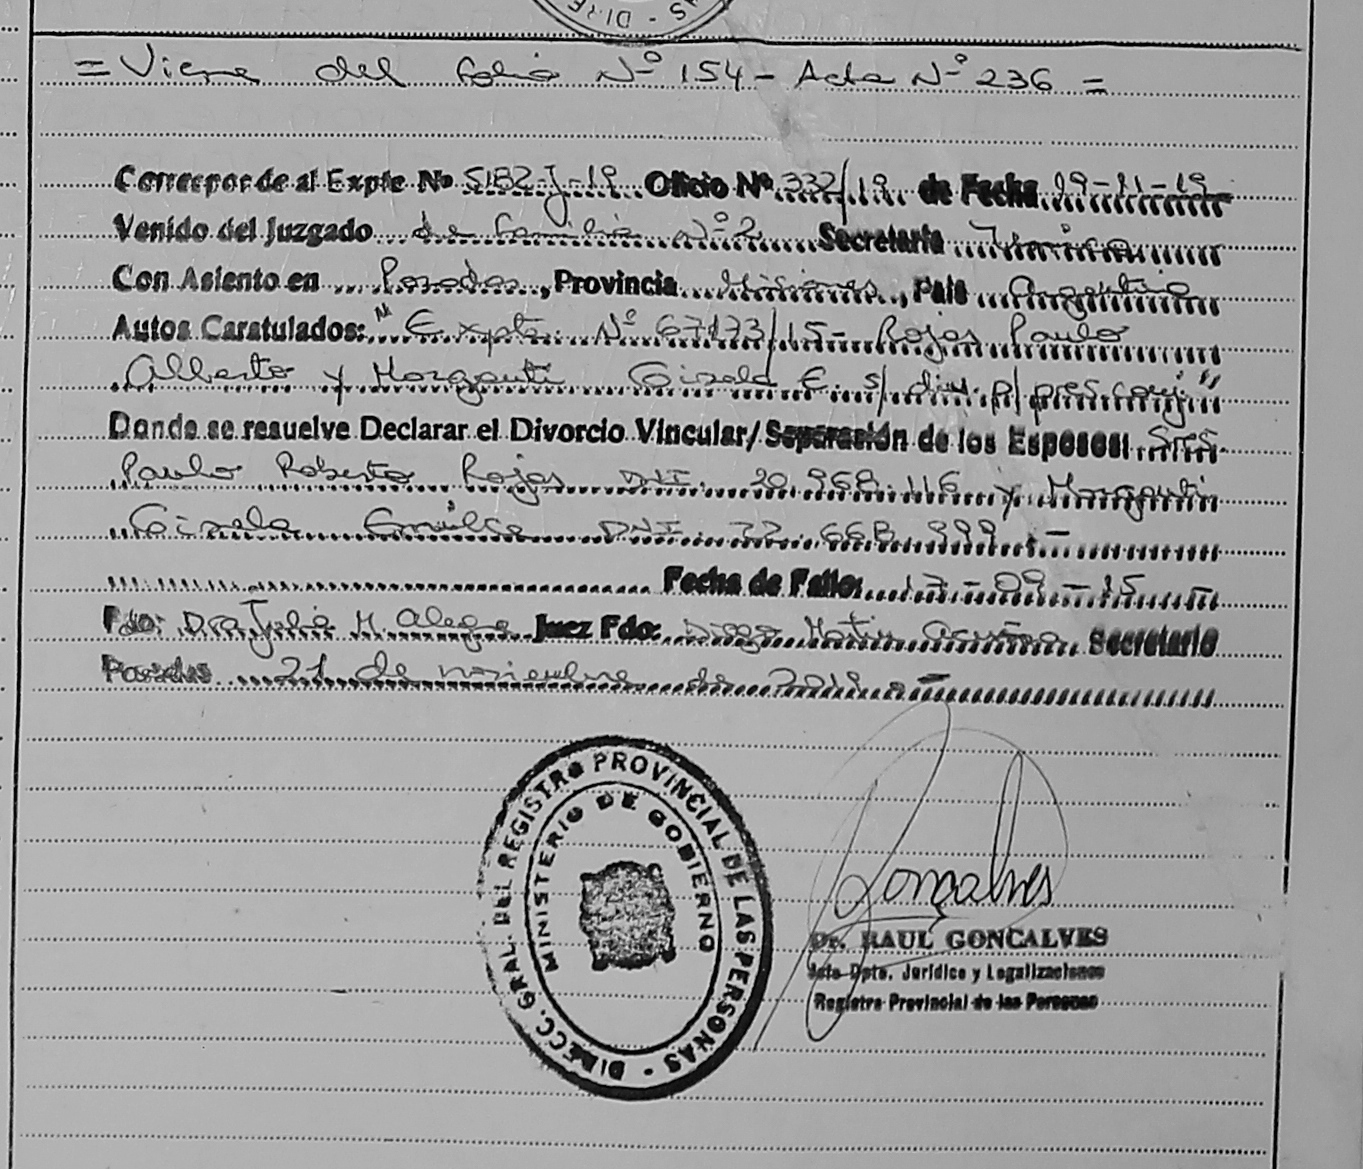 S - DIRE
= Viene del folio Nº 154 - Acta Nº 236 =
Corresponde al Expte Nº 5182-J-19 Oficio Nº 332/19 de Fecha 19-11-19
Venido del Juzgado de familia Nº 2 Secretaria Única
Con Asiento en Posadas, Provincia Misiones, Pais Argentina
Autos Caratulados: "Expte. Nº 67173/15 - Rojas Paulo
Alberto y Morgantti Gisela E. s/ div. p/ pres. conj"
Donde se resuelve Declarar el Divorcio Vincular/ Separasión de los Esposos: Sres
Paulo Roberto Rojas DNI. 20.968.116 y Morgantin
Gisela Emilse DNI. 22.668.999.-
Fecha de Fallo: 17-09-15
Fdo: Dra Julia M. Alegre Juez Fdo: Diego Martin Secretario
Posadas 21 de noviembre de 2019.-
DIRECC. GRAL. DEL REGISTRO PROVINCIAL DE LAS PERSONAS -
MINISTERIO DE GOBIERNO
Gonçalves
Dr. RAUL GONCALVES
Jefe Dpto. Jurídico y Legalizaciones
Registro Provincial de las Personas